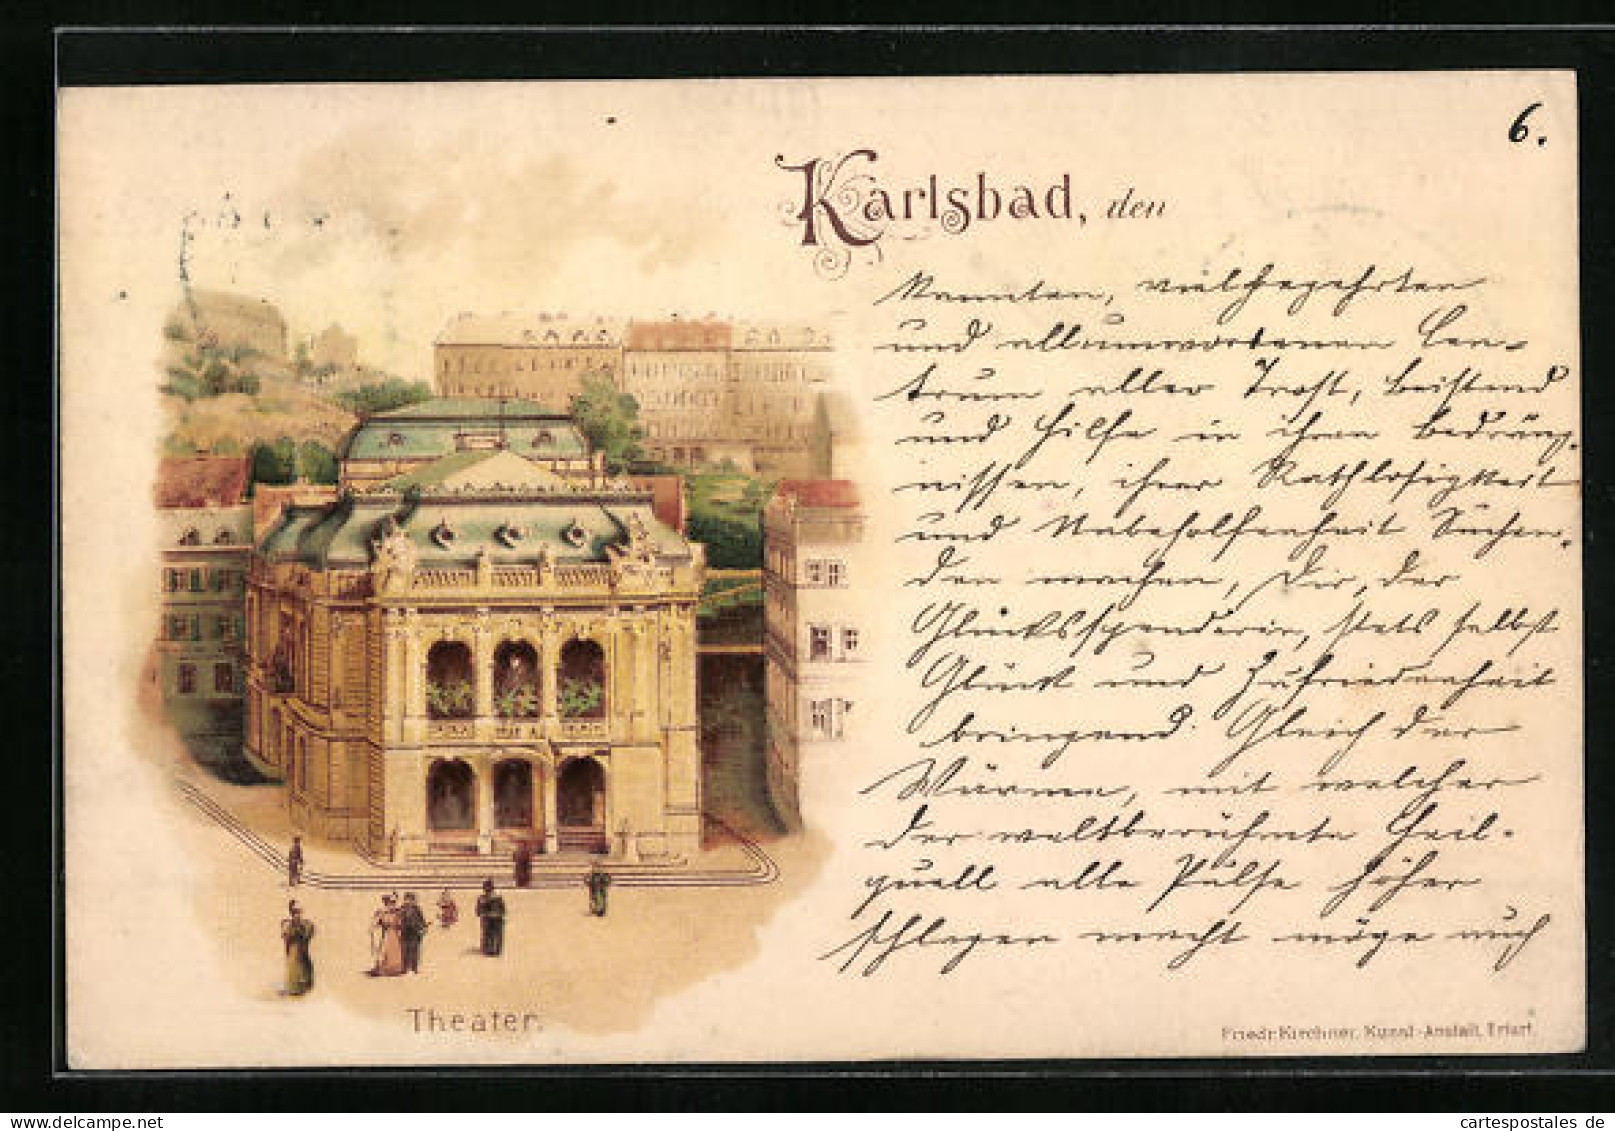 6.
Karlsbad, den
kannten, vielhegehrten
und allumworbenen Cen-
trum aller Trost, Beistand
und Hilfe in ihren Bedräng-
nissen, ihrer Rathlosigkeit
und Unbeholfenheit Suchen-
den machen, Dir, der
Glücksspenderin, stets selbst
Glück und Zufriedenheit
bringend. Gleich der
Wärme, mit welcher
der weltberühmte Heil-
quell alle Pulse höher
schlagen macht möge auch
Theater.
Friedr. Kirchner, Kunst-Anstalt, Erfurt.
cartespostales de